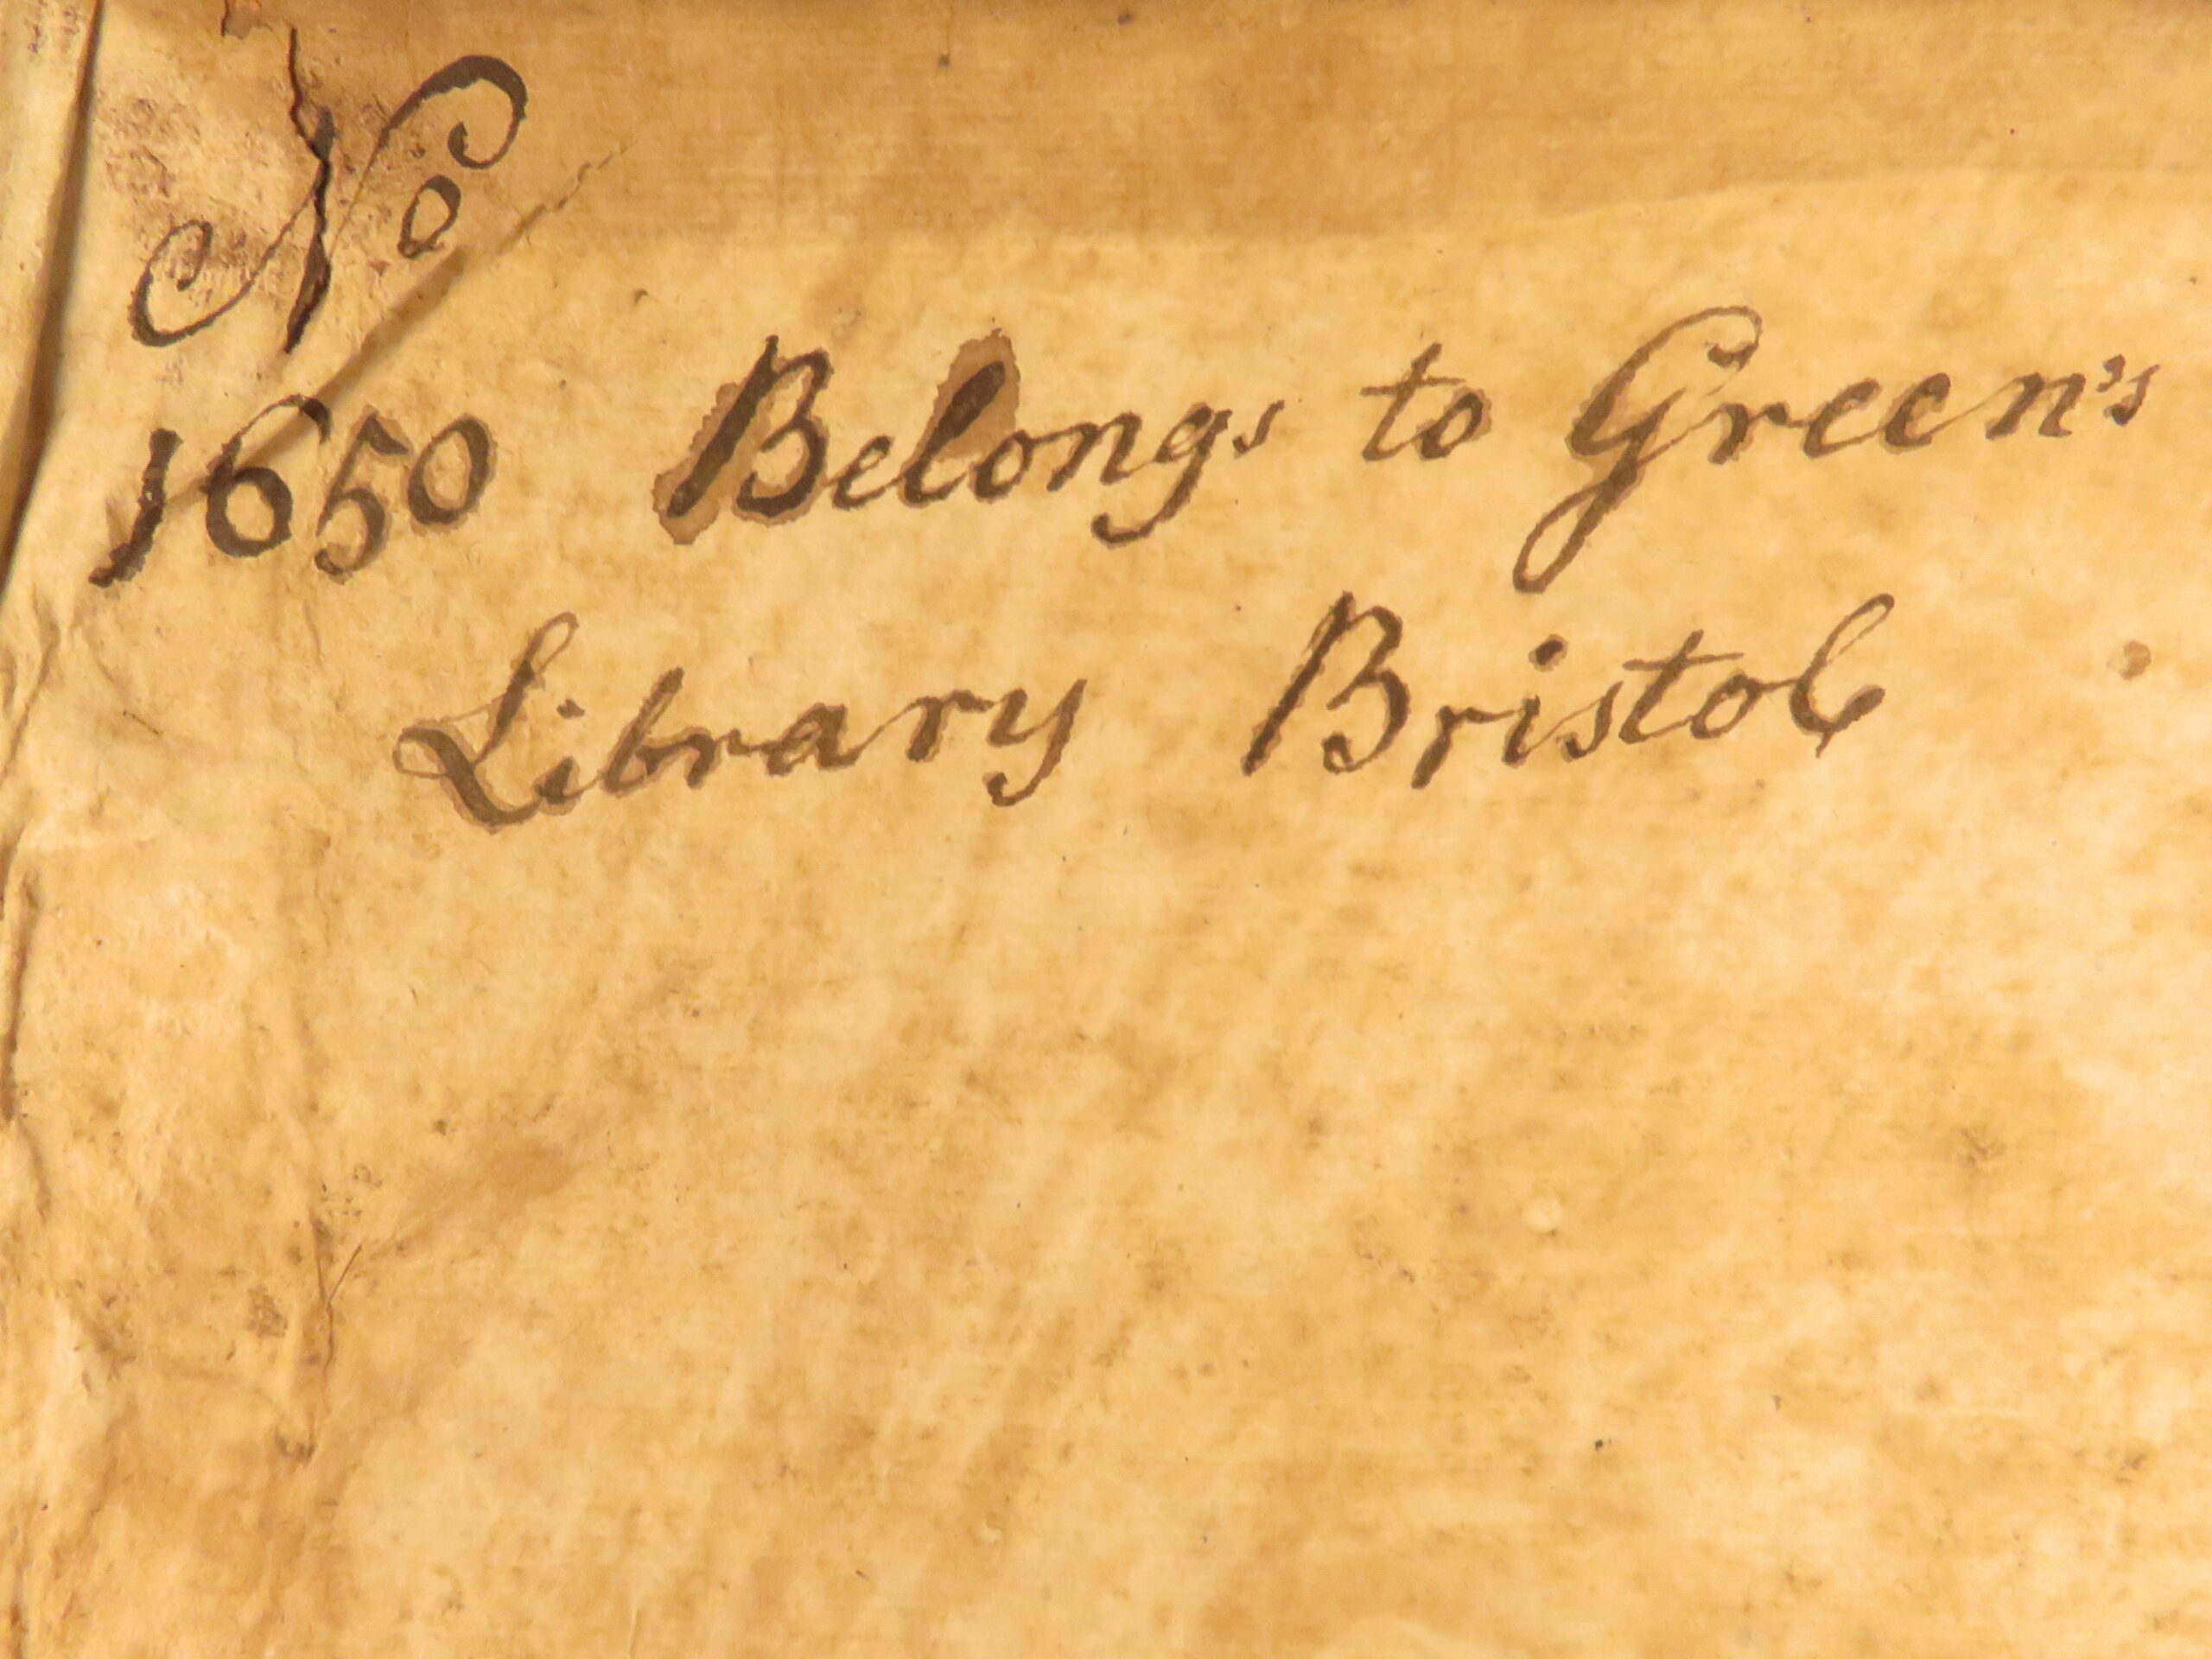 No
1650 Belongs to Green's
Library Bristol